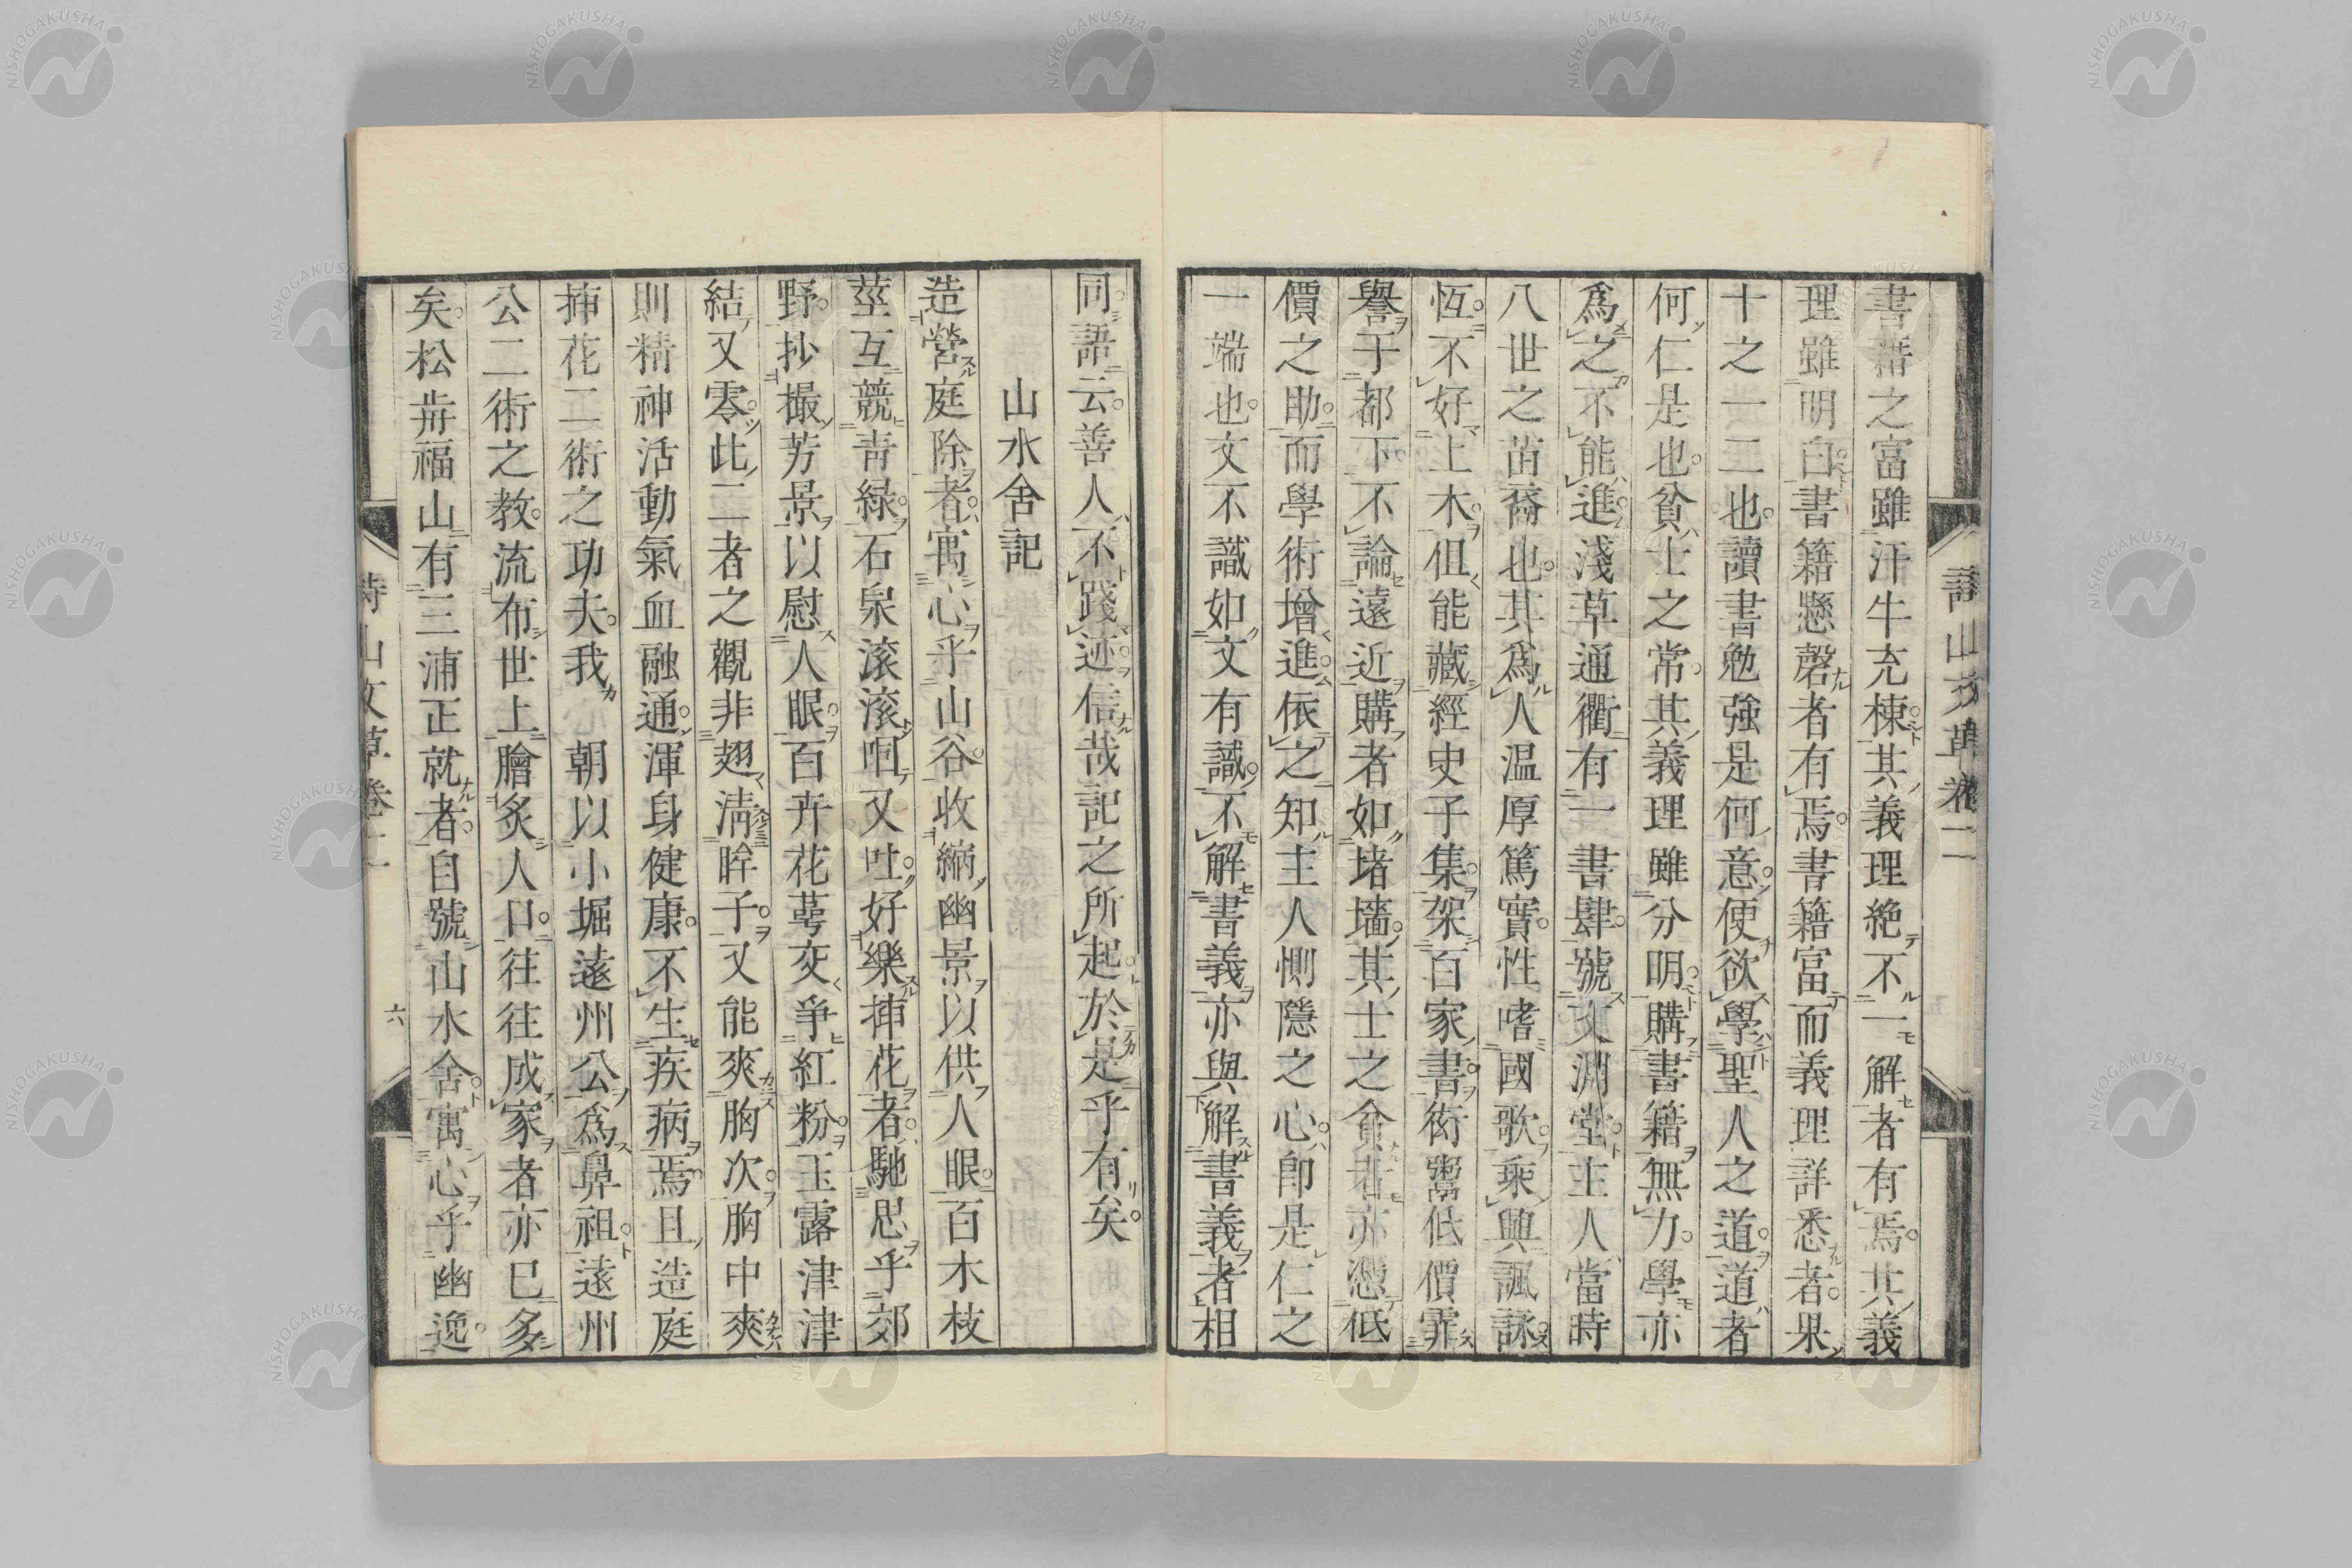 書籍之富雖汗牛充棟其義理絶不一解者有焉其義
理雖明白書籍懸磬者有焉書籍富而義理詳悉者果
十之一二也讀書勉強是何意使欲學聖人之道道者
何仁是也貧士之常其義理雖分明購書籍無力學亦
爲之不能進淺草通衢有一書肆號文淵堂主人當時
八世之苗裔也其爲人温厚篤實性嗜國歌乘興諷詠
恆不好上木但能藏經史子集架百家書衒鬻低價霏
譽于都下不論遠近購者如堵墻其士之貧者亦憑低
價之助而學術增進依之知主人惻隱之心卽是仁之
一端也文不識如文有識不解書義亦與解書義者相
同語云善人不踐迹信哉記之所起於是乎有矣
山水舍記
造營庭除者寓心乎山谷收縮幽景以供人眼百木枝
莖互競靑綠石泉滚滚咽又吐好樂揷花者馳思乎郊
野抄撮芳景以慰人眼百卉花蕚交爭紅粉玉露津津
結又零此二者之觀非翅淸眸子又能爽胸次胸中爽
則精神活動氣血融通渾身健康不生疾病焉且造庭
揷花二術之功夫我 朝以小堀遠州公爲鼻祖遠州
公二術之教流布世上膾炙人口往往成家者亦已多
矣松歬福山有三浦正就者自號山水舍寓心乎幽逸
詩山文草卷二
詩山文草卷二
六
NISHOGAKUSHA